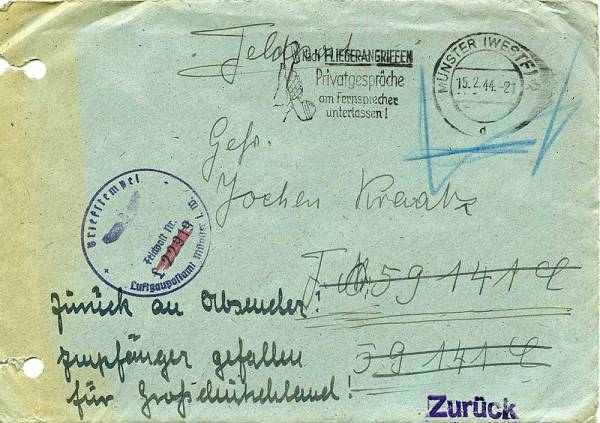 Feldpost
Nach FLIEGERANGRIFFEN
Privatgespräche
am Fernsprecher
unterlassen!
MÜNSTER (WESTF)
15.2.44.-21
d
Gefr.
Jochen Kraatz
Briefstempel
Feldpost Nr.
L 22919
Luftgaupostamt Münster i. W.
59141
Zurück an Absender!
Empfänger gefallen
59141
für Großdeutschland!
Zurück